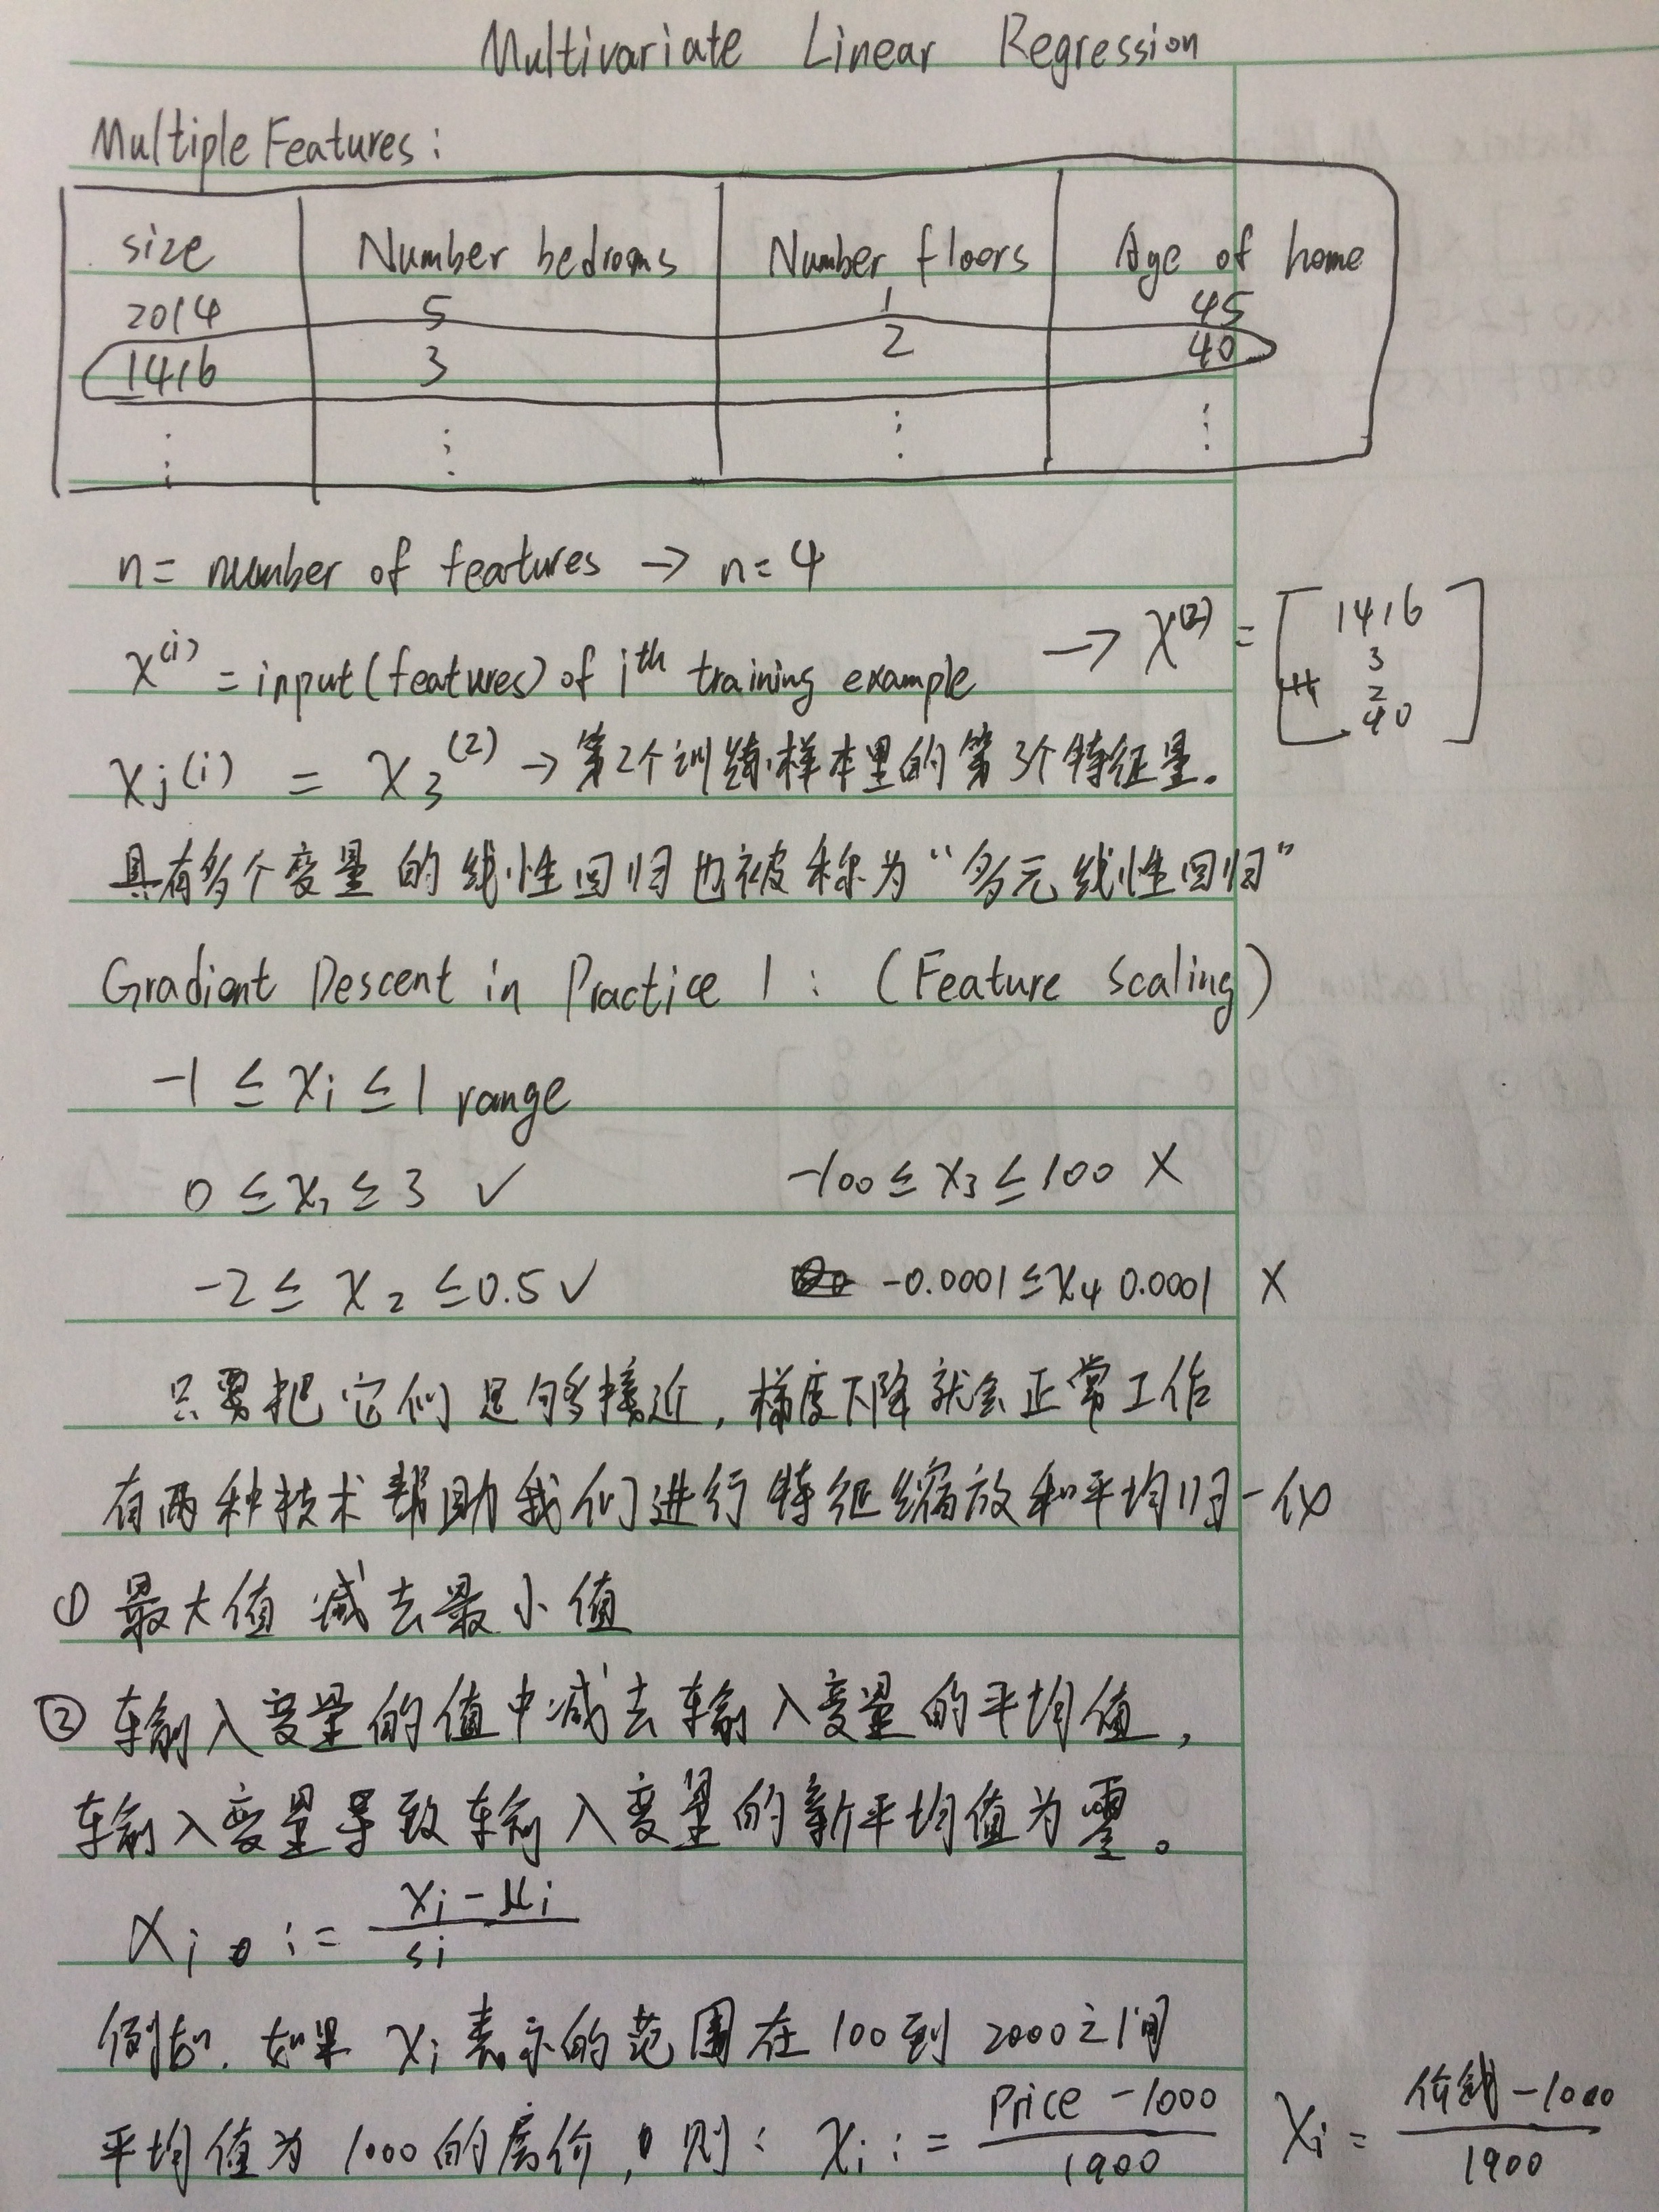 Multivariate Linear Regression
Multiple Features:
size Number bedrooms Number floors Age of home
2014 5 1 45
1416 3 2 40
⋮ ⋮ ⋮ ⋮
n = number of features → n = 4
x⁽ⁱ⁾ = input (features) of iᵗʰ training example → x⁽²⁾ = [1416 3 2 40]
xj(i) = x₃⁽²⁾ → 第2个训练样本里的第3个特征量。
具有多个变量的线性回归也被称为“多元线性回归”
Gradient Descent in Practice 1: (Feature Scaling)
-1 ≤ xi ≤ 1 range
0 ≤ x₁ ≤ 3 ✓ -100 ≤ x₃ ≤ 100 X
-2 ≤ x₂ ≤ 0.5 ✓ -0.0001 ≤ x₄ 0.0001 X
只要把它们足够接近, 梯度下降就会正常工作
有两种技术帮助我们进行特征缩放和平均归一化
① 最大值减去最小值
② 输入变量的值中减去输入变量的平均值,
输入变量导致输入变量的新平均值为零。
xi := (xi - μi) / si
例如. 如果 xi 表示的范围在 100 到 2000 之间
平均值为 1000 的房价, 则: xi := (Price - 1000) / 1900 xi = (价钱 - 1000) / 1900